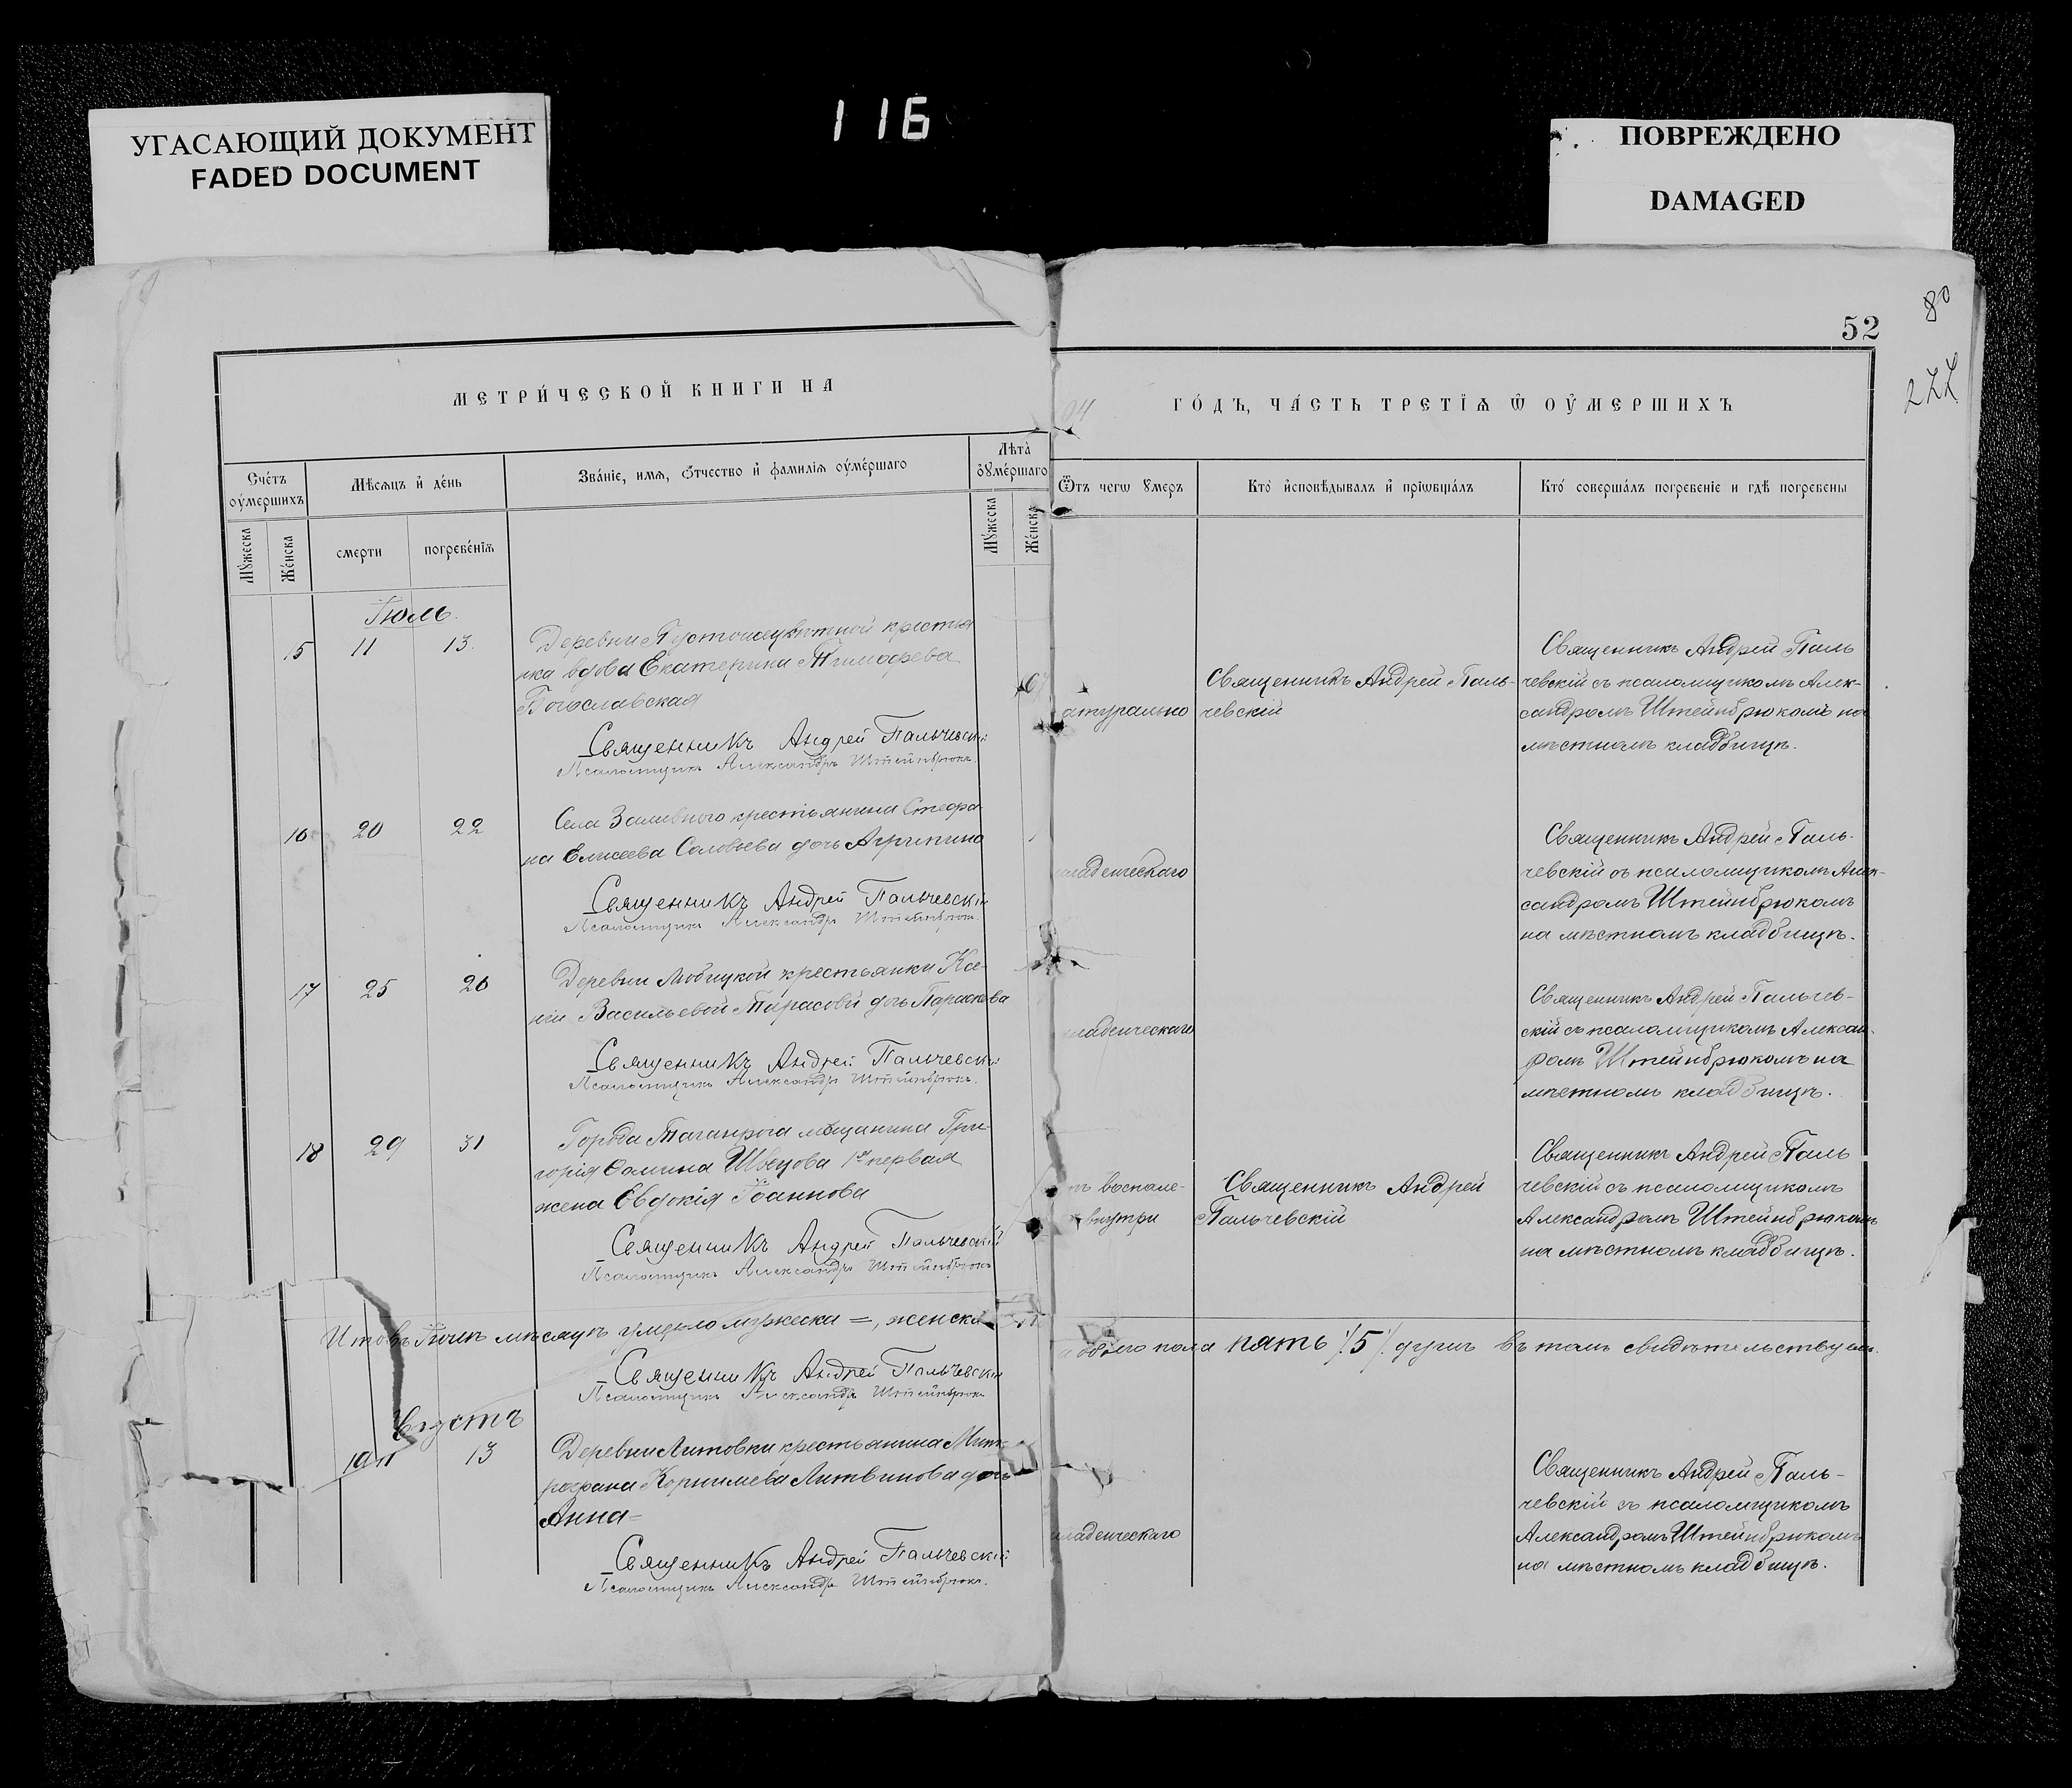 УГАСАЮЩИЙ ДОКУМЕНТ
FADED DOCUMENT
116
ПОВРЕЖДЕНО
DAMAGED
52
80
277
МЕТРИ́ЧЕСКОЙ КНИГИ НА
ГО́ДЪ, ЧА́СТЬ ТРЕТІѦ Ѿ ОУ҆МЕРШИХЪ
Сче́тъ
оу҆мершихъ
Мѣсѧцъ и҆ де́нь
Зва́ніе, имѧ, ѻ҆тчество и҆ фамиліѧ оу҆ме́ршаго
Лѣта̀
оу҆ме́ршаго
Ѿтъ чегѡ ѹмеръ
Кто̀ и҆сповѣ́дывалъ и҆ прїѡбща́лъ
Кто́ соверша́лъ погребеніе и гдѣ̀ погребены
Мꙋжеска
Же́нска
смерти
погребе́ніѧ
Мꙋ́жеска
Же́нска
Іюль.
15 11 13.
Деревни Пустошецвитной крестья
нка вдова Екатерина Тимофеева
Богославская
Священникъ Андрей Пальчевскій
Псаломщикъ Александръ Штейнбрюкъ.
атурально
Священникъ Андрей Паль-
чевскій
Священникъ Андрей Паль
чевскій съ псаломщикомъ Алек-
сандромъ Штейнбрюкомъ на
мѣстномъ кладбищѣ.
16 20 22
Села Заливного крестьянина Стефа-
на Елисеева Соловьева дочь Агрипина
Священникъ Андрей Пальчевскій
Псаломщикъ Александръ Штейнбрюкъ.
младенческаго
Священникъ Андрей Паль-
чевскій съ псаломщикомъ Алек-
сандромъ Штейнбрюкомъ
на мѣстномъ кладбищѣ.
17 25 26
Деревни крестьянки Ксе-
ніи Васильевой Тарасовой дочь Параскева
Священникъ Андрей Пальчевскій
Псаломщикъ Александръ Штейнбрюкъ.
младенческаго
Священникъ Андрей Пальчев-
скій съ псаломщикомъ Алексан-
ромъ Штейнбрюкомъ на
мѣстномъ кладбищѣ.
18 29 31
Города Таганрога мѣщанина Гри-
горія Фомина Швецова 1я первая
жена Евдокія Іоаннова
Священникъ Андрей Пальчевскій
Псаломщикъ Александръ Штейнбрюкъ
тъ воспале-
внутри
Священникъ Андрей
Пальчевскій
Священникъ Андрей Паль
чевскій съ псаломщикомъ
Александромъ Штейнбрюкомъ
на мѣстномъ кладбищѣ.
Итого въ Іюлѣ мѣсяцѣ умерло мужеска =, женска
обоего пола пять /5/ душъ Въ томъ свидѣтельствуемъ.
Священникъ Андрей Пальчевскій
Псаломщикъ Александръ Штейнбрюкъ
густъ
11 13
Деревни Литовки крестьянина Мит-
рофана Корнилева Литвинова дочь
Анна=
Священникъ Андрей Пальчевскій
Псаломщикъ Александръ Штейнбрюкъ.
младенческаго
Священникъ Андрей Паль-
чевскій съ псаломщикомъ
Александромъ Штейнбрюкомъ
на мѣстномъ кладбищѣ.